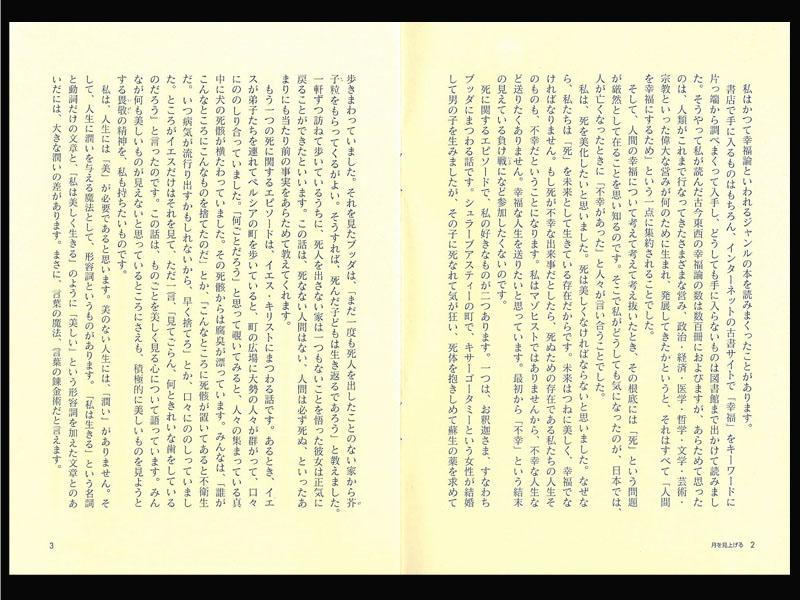 私はかつて幸福論といわれるジャンルの本を読みまくったことがあります。
書店で手に入るものはもちろん、インターネットの古書サイトで「幸福」をキーワードに
片っ端から調べまくって入手し、どうしても手に入らないものは図書館まで出かけて読みまし
た。そうやって私が読んだ古今東西の幸福論の数は数百冊におよびますが、あらためて思った
のは、人類がこれまで行なってきたさまざまな営み、政治・経済・医学・哲学・文学・芸術・
宗教といった偉大な営みが何のために生まれ、発展してきたかというと、それはすべて「人間
を幸福にするため」という一点に集約されることでした。
そして、人間の幸福について考えて考えて考え抜いたとき、その根底には「死」という問題
が厳然として在ることを思い知るのです。そこで私がどうしても気になったのが、日本では、
人が亡くなったときに「不幸があった」と人々が言い合うことでした。
私は、死を美化したいと思いました。死は美しくなければならないと思いました。なぜな
ら、私たちは「死」を未来として生きている存在だからです。未来はつねに美しく、幸福でな
ければなりません。もし死が不幸な出来事だとしたら、死ぬための存在である私たちの人生そ
のものも、不幸だということになります。私はマゾヒストではありませんから、不幸な人生な
ど送りたくありません。幸福な人生を送りたいと思っています。最初から「不幸」という結末
の見えている負け戦になど参加したくないのです。
死に関するエピソードで、私の好きなものが二つあります。一つは、お釈迦さま、すなわち
ブッダにまつわる話です。シュラーブアスティーの町で、キサーゴータミーという女性が結婚
して男の子を生みましたが、その子に死なれて気が狂い、死体を抱きしめて蘇生の薬を求めて
月を見上げる 2
歩きまわっていました。それを見たブッダは、「まだ一度も死人を出したことのない家から芥
子粒をもらってくるがよい。そうすれば、死んだ子どもは生き返るであろう」と教えました。
一軒ずつ訪ねて歩いているうちに、死人を出さない家は一つもないことを悟った彼女は正気に
戻ることができたといいます。この話は、死なない人間はない、人間は必ず死ぬ、といったあ
まりにも当たり前の事実をあらためて教えてくれます。
もう一つの死に関するエピソードは、イエス・キリストにまつわる話です。あるとき、イエ
スが弟子たちを連れてペルシアの町を歩いていると、町の広場に大勢の人々が群がって、口々
にののしり合っていました。「何ごとだろう」と思って覗いてみると、人々の集まっている真
中に犬の死骸が横たわっていました。その死骸からは腐臭が漂っています。みんなは、「誰が
こんなところにこんなものを捨てたのだ」とか、「こんなところに死骸が置いてあると不衛生
だ。いつ病気が流行り出すかもしれないから、早く捨てろ」とか、口々にののしっていまし
た。ところがイエスだけはそれを見て、ただ一言、「見てごらん、何ときれいな歯をしている
のだろう」と言ったのです。この話は、ものごとを美しく見る心について語っています。みん
なが何も美しいものが見えないと思っているところにさえも、積極的に美しいものを見ようと
する畏敬の精神を、私も持ちたいものです。
私は、人生には「美」が必要であると思います。美のない人生には、「潤い」がありません。そ
して、人生に潤いを与える魔法として、形容詞というものがあります。「私は生きる」という名詞
と動詞だけの文章と、「私は美しく生きる」のように「美しい」という形容詞を加えた文章とのあ
いだには、大きな潤いの差があります。まさに、言葉の魔法、言葉の錬金術だと言えます。
3